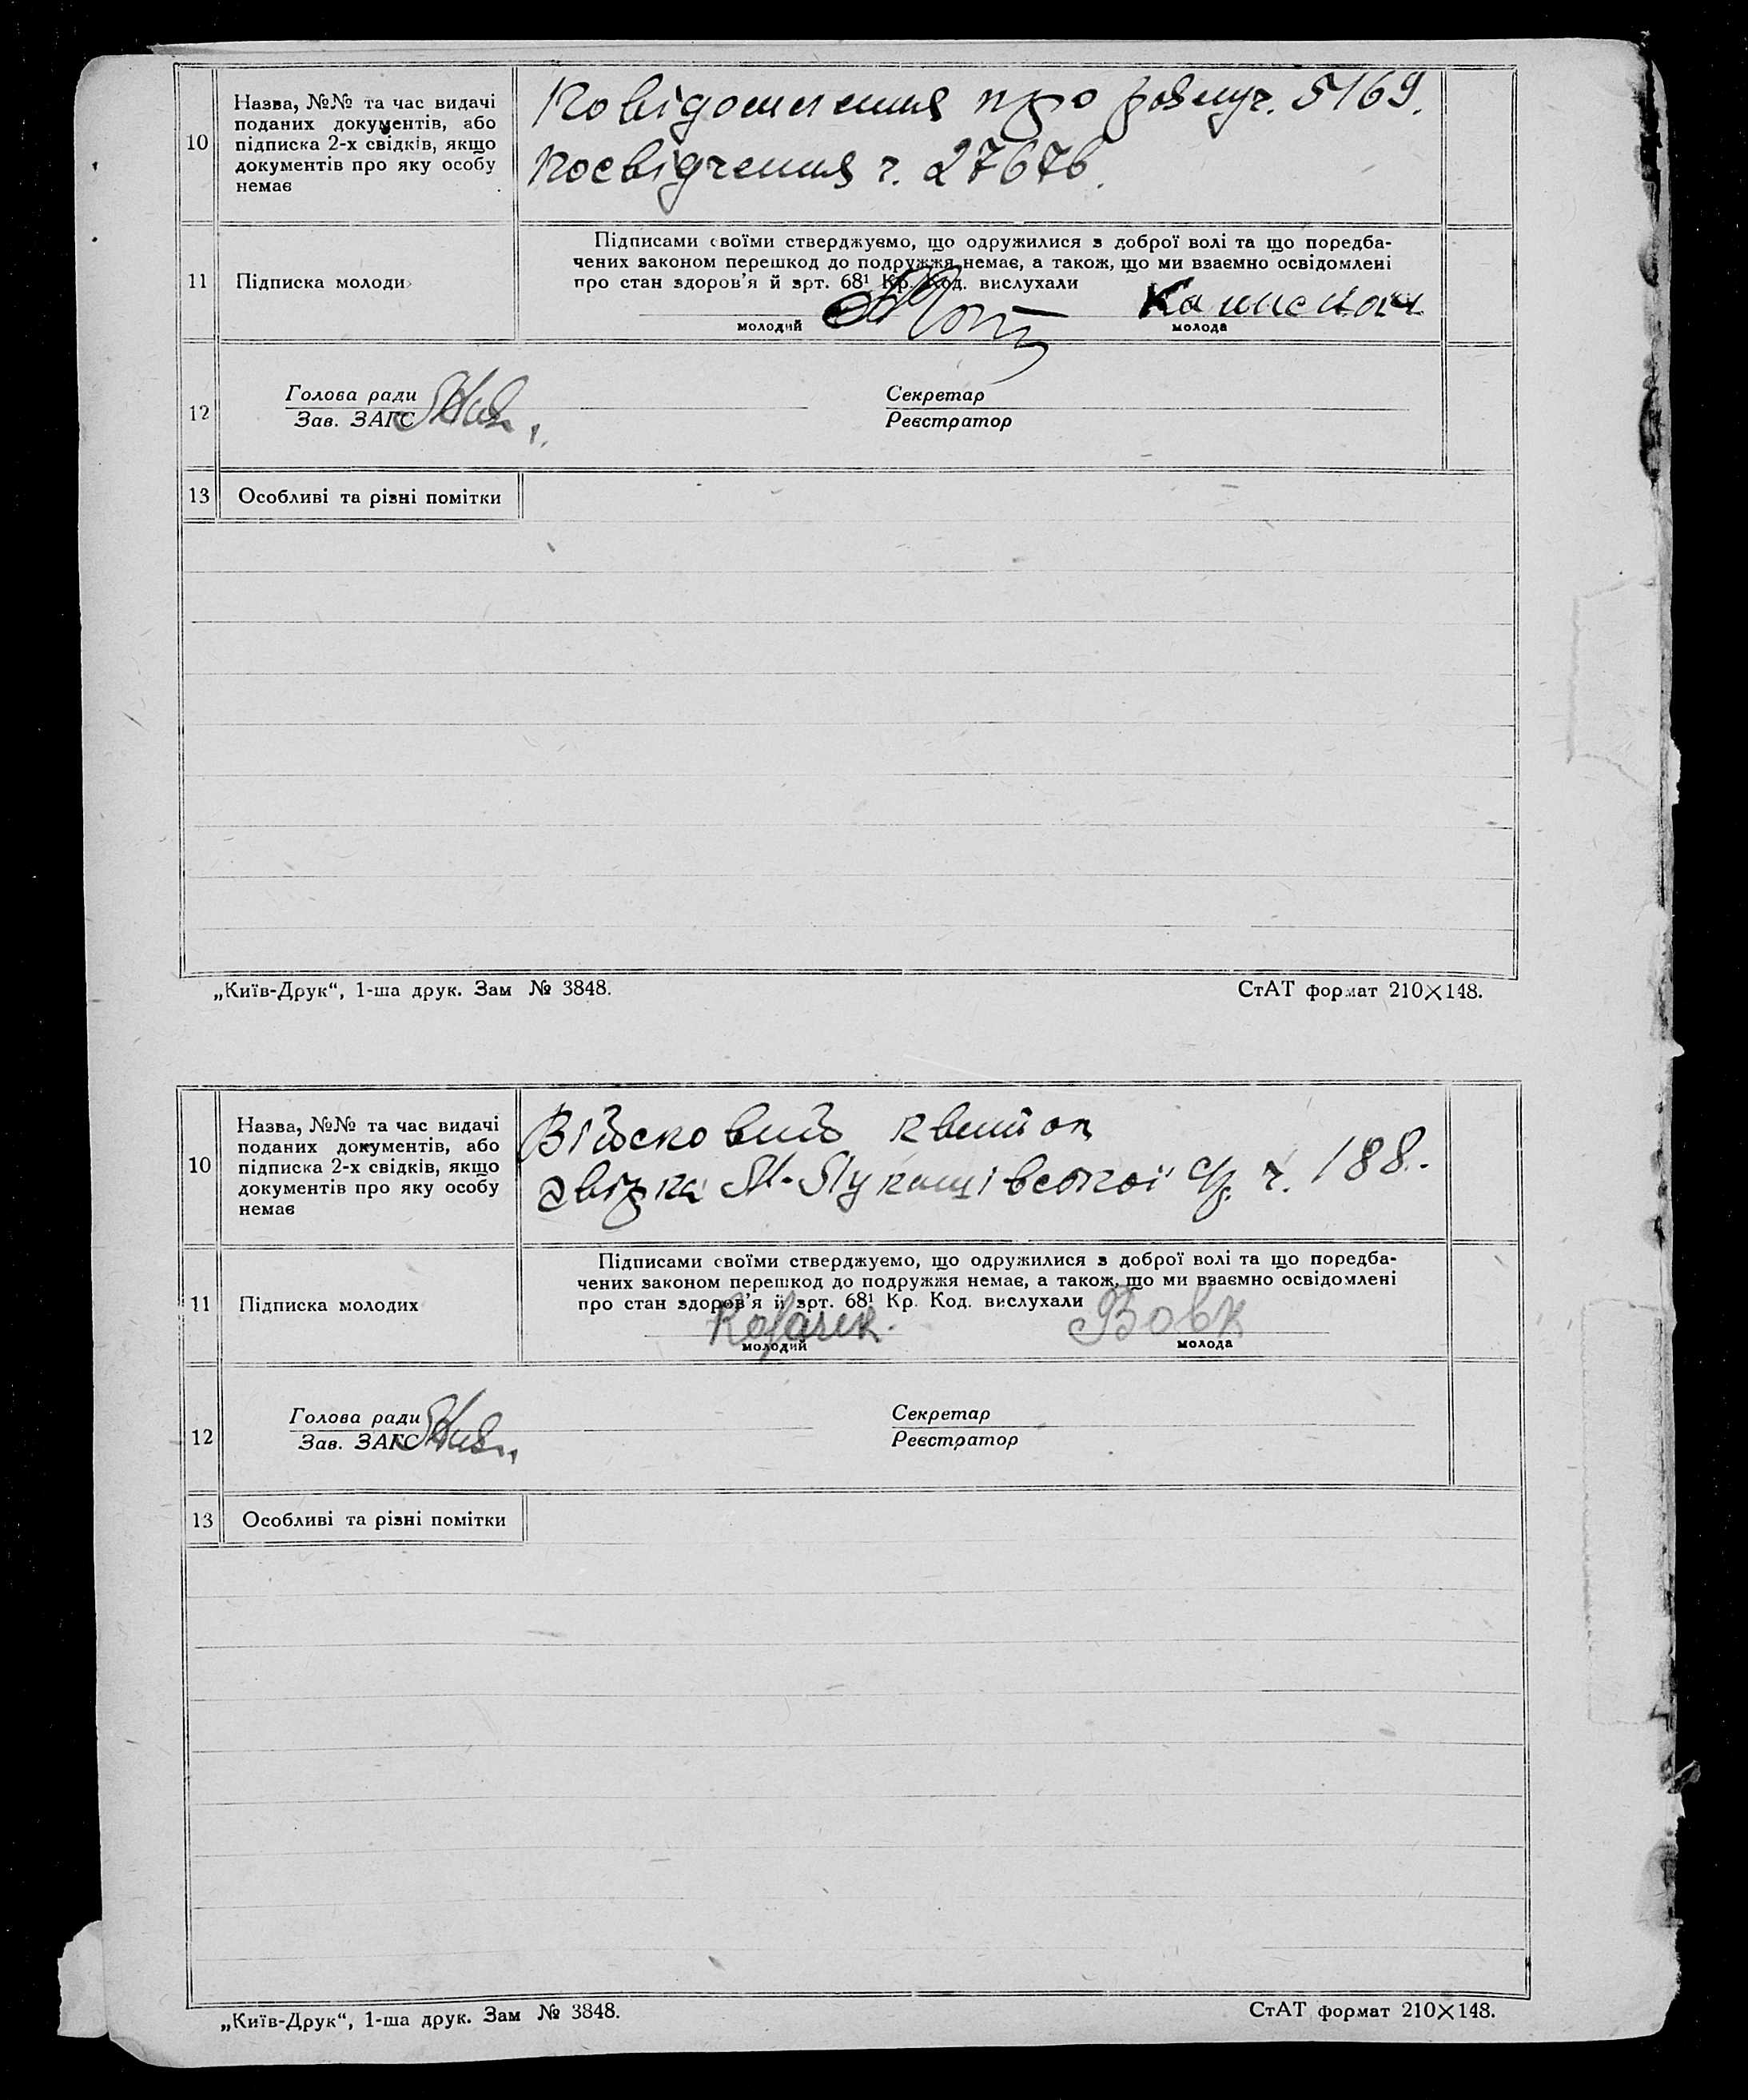 10
Назва, №№ та час видачі
поданих документів, або
підписка 2-х свідків, якщо
документів про яку особу
немає
Повідомлення про розлуч. 5169.
Посвідчення ч. 27676.
11
Підписка молоди
Підписами своїми стверджуємо, що одружилися з доброї волі та що поредба-
чених законом перешкод до подружжя немає, а також, що ми взаємно освідомлені
про стан здоров'я й арт. 68¹ Кр. Код. вислухали
молодий
молода
12
Голова ради
Зав. ЗАГС
Секретар
Реєстратор
13
Особливі та різні помітки
„Київ-Друк“, 1-ша друк. Зам № 3848.
СтАТ формат 210×148.
10
Назва, №№ та час видачі
поданих документів, або
підписка 2-х свідків, якщо
документів про яку особу
немає
Військовий квиток
ч. 188.
11
Підписка молодих
Підписами своїми стверджуємо, що одружилися з доброї волі та що поредба-
чених законом перешкод до подружжя немає, а також, що ми взаємно освідомлені
про стан здоров'я й арт. 68¹ Кр. Код. вислухали
Вовк
молодий
молода
12
Голова ради
Зав. ЗАГС
Секретар
Реєстратор
13
Особливі та різні помітки
„Київ-Друк“, 1-ша друк. Зам № 3848.
СтАТ формат 210×148.